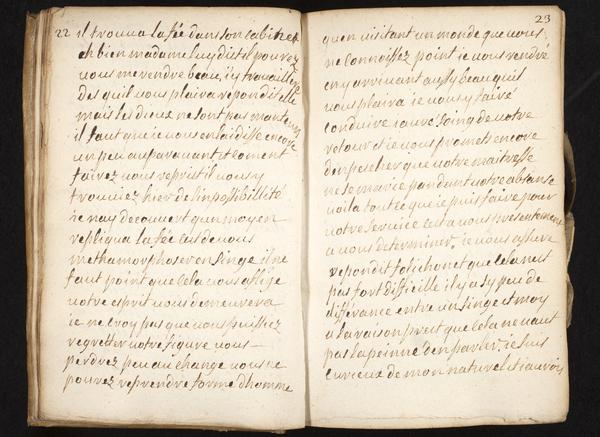 22 il trouva la fée dans son cabinet
eh bien madame luy dit il pouvez
vous me rendre beau, j'y travaillere
des qu'il vous plaira repondit elle
mais les dieux ne sont pas
il faut que je vous enlaidisse encore
un peu auparavant et coment
fairez vous reprit il vous y
trouviez hier de l'impossibillité
je n'ay decouvert qu'un moyen
repliqua la fée c'est de vous
methamorphoser en singe il ne
faut point que cela vous aflige
votre esprit vous demeurera
je ne croy pas que vous puissiez
regretter votre figure vous
perdrez peu au change vous ne
pouvez reprendre forme d'homme
23
qu'en visitant un monde que vous
ne connoissez point je vous rendré
en y arrivant aussy beau qu'il
vous plaira je vous y fairé
conduire j'auré soing de votre
retour et je vous promets encore
d'inpescher que votre maitresse
ne se marie pandant votre absanse
voila tout ce que je puis faire pour
votre service c'est a vous presentement
a vous determiner, je vous assure
repondit folichon et que cela n'est
pas fort difficille il y a sy peu de
differance entre un singe et moy
a la raison pres que cela ne vaut
pas la peinne d'en parler, je suis
curieux de mon naturel et j'aurois